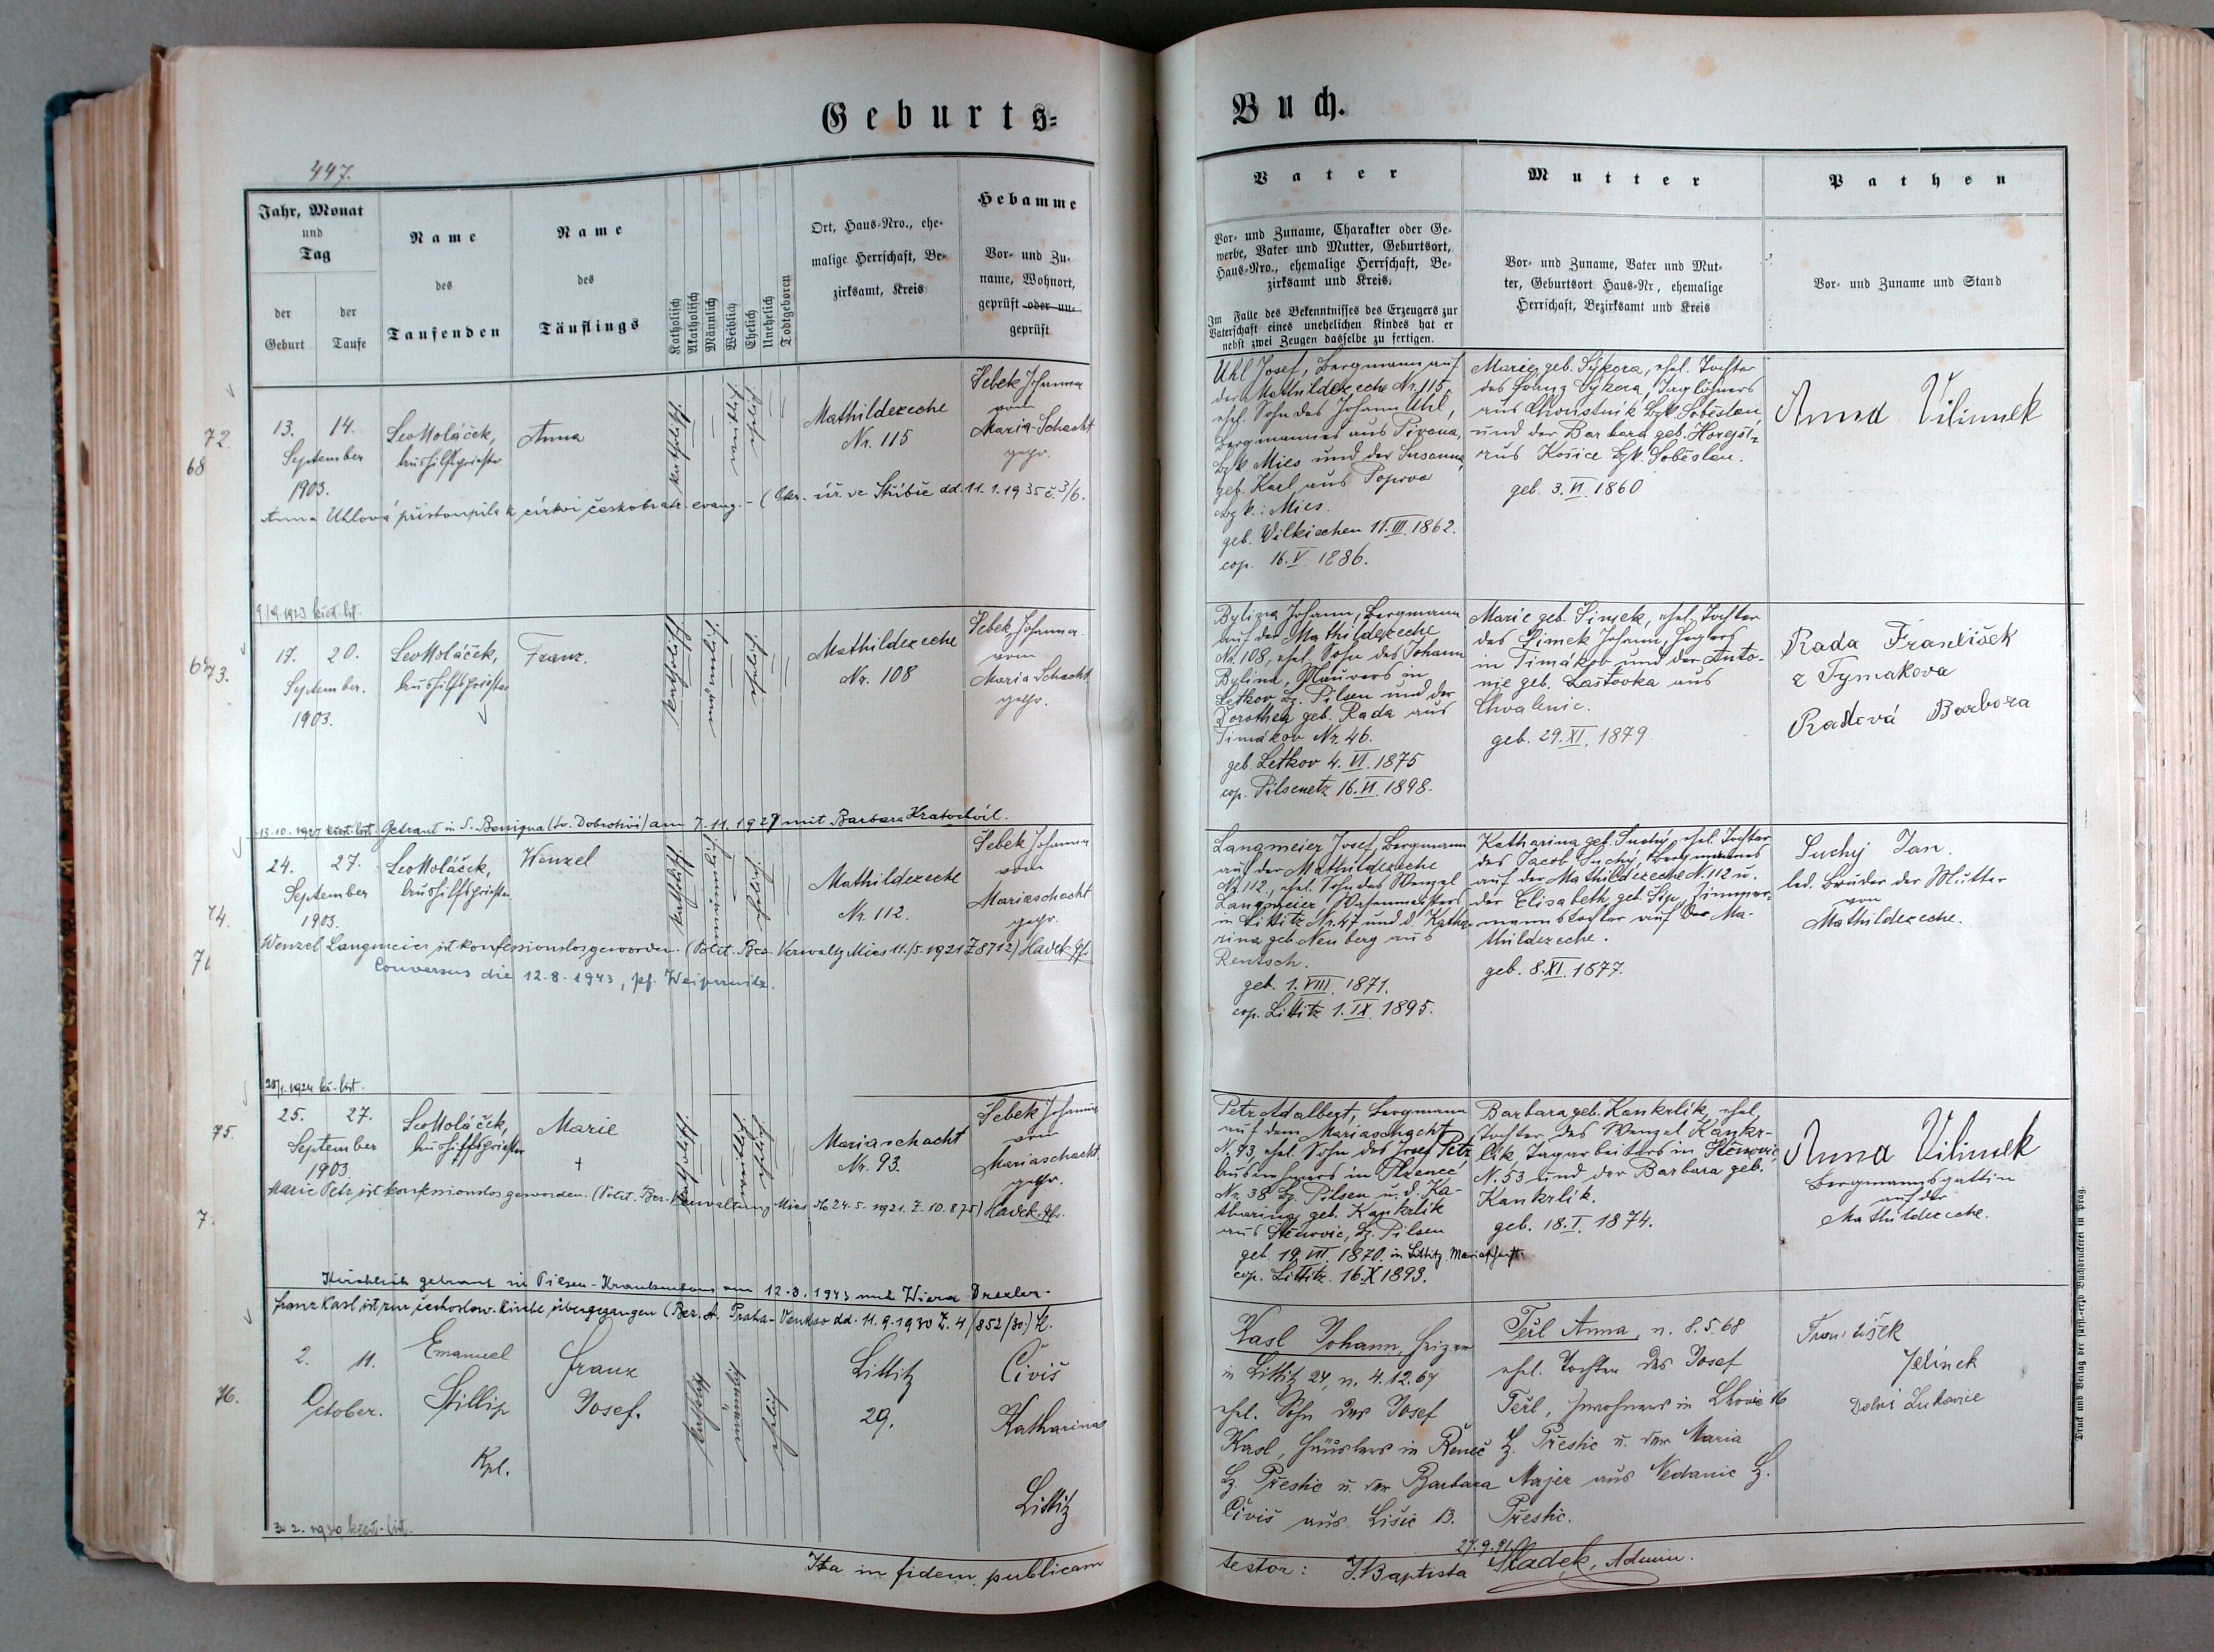 Geburts=
Buch.
447.
Jahr, Monat
und
Tag
der
Geburt
der
Taufe
Name
des
Taufenden
Name
des
Täuflings
Katholisch
Akatholisch
Männlich
Weiblich
Ehelich
Unehelich
Todtgeboren
Ort, Haus=Nro., ehe-
malige Herrschaft, Be-
zirksamt, Kreis
Hebamme
Vor= und Zu-
name, Wohnort,
geprüft oder un-
geprüft
Vater
Vor= und Zuname, Charakter oder Ge-
werbe, Vater und Mutter, Geburtsort,
Haus=Nro., ehemalige Herrschaft, Be-
zirksamt und Kreis.
Im Falle des Bekenntnisses des Erzeugers zur
Vaterschaft eines unehelichen Kindes hat er
nebst zwei Zeugen dasselbe zu fertigen.
Mutter
Vor= und Zuname, Vater und Mut-
ter, Geburtsort Haus=Nr, ehemalige
Herrschaft, Bezirksamt und Kreis
Pathen
Vor= und Zuname und Stand
72.
68
13. 14.
September
1903.
Leo Moláček,
Aushilfspriester
Anna
katholisch
weiblich
ehelich
Mathildezeche
Nr. 115
Šebek Johanna
vom
Maria-Schacht
gepr.
Anna Uhlová přistoupila k církvi českobratr. evang. - (Okr. úř. ve Stříbře dd. 11.1.1935 č. 3/6.
Uhl Josef, Bergmann auf
der Mathildezeche Nr. 115,
ehel. Sohn des Johann Uhl,
Bergmannes aus Pivana,
Bzk. Mies und der Susanna
geb. Karl aus Popova
Bzk. Mies.
geb. Wilkischen 11.III.1862.
cop. 16.V.1886.
Marie, geb. Sýkora, ehel. Tochter
des Franz Sýkora, Taglöhners
aus Choustník Bzk. Soběslau
und der Barbara geb. Horejší
aus Košice Bzk. Soběslau.
geb. 3.VI.1860
Anna Vilimek
9/9.1923 křest. list.
73.
17. 20.
September.
1903.
Leo Moláček,
Aushilfspriester
Franz.
katholisch
männlich
ehelich
Mathildezeche
Nr. 108
Šebek Johanna
vom
Maria Schacht
gepr.
Bylina Johann, Bergmann
auf der Mathildezeche
Nr. 108, ehel. Sohn des Johann
Bylina, Maurers in
Letkov Bz. Pilsen und der
Dorothea geb. Rada aus
Timákov Nr. 46.
geb. Letkov 4.VI.1875
cop. Pilsenetz 16.VI.1898.
Marie geb. Šimek, ehel. Tochter
des Šimek Johann, Heglers
in Timákov und der Anto-
nie geb. Laštovka aus
Chvalenic.
geb. 29.XI.1879
Rada František
z Tymakova
Radová Barbora
13.10.1927 křest. list. Getraut in S. Benigna (Sv. Dobrotivá) am 7.11.1927 mit Barbara Kratochvíl.
74.
71
24. 27.
September
1903.
Leo Moláček,
Aushilfspriester
Wenzel
katholisch
männlich
ehelich
Mathildezeche
Nr. 112.
Šebek Johanna
vom
Mariaschacht
gepr.
Wenzel Langmeier ist konfessionslos geworden. (Polit. Bez. Verwaltg Mies 11./5.1921 Z 8712) Havek Pf.
Conversus die 12.8.1943, pf. Weipernitz.
Langmeier Josef, Bergmann
auf der Mathildezeche
Nr. 112, ehel. Sohn des Wenzel
Langmeier Wasenmeisters
in Littitz Nr. 47 und d. Katha-
rina geb. Neuberg aus
Rentsch.
geb. 1.VIII.1871.
cop. Littitz 1.IX.1895.
Katharina geb. Suchý, ehel. Tochter
des Jacob Suchý, Bergmannes
auf der Mathildezeche N. 112 u.
der Elisabeth geb. Sip, Zimmer-
mannstochter auf der Ma-
thildezeche.
geb. 8.XI.1877.
Suchý Jan.
led. Bruder der Mutter
von
Mathildezeche.
28/1.1924 kř. list.
75.
7.
25. 27.
September
1903
Leo Moláček,
Aushilfspriester
Marie
+
katholisch
weiblich
ehelich
Mariaschacht
Nr. 93.
Šebek Johanna
vom
Mariaschacht
gepr.
Marie Petz ist konfessionslos geworden. (Polit. Bez. Verwaltung Mies No 24.5.1921. Z. 10.875) Havek, Pf.
Petz Adalbert, Bergmann
auf dem Mariaschacht
N. 93, ehel. Sohn des Josef Petz
Ausinhners in Plzenec
Nr. 38 Bz. Pilsen u. d. Ka-
tharina geb. Kankrlík
aus Stěnovic, Bz. Pilsen
geb. 19.VII.1870. in Littitz Mariaschacht
cop. Littitz. 16.X.1893.
Barbara geb. Kankrlík, ehel.
Tochter des Wenzel Kankr-
lík, Tagarbeiters in Stěnovic,
N. 53 und der Barbara geb.
Kankrlík.
geb. 18.I.1874.
Anna Vilimek
Bergmannsgattin
auf der
Mathildezeche.
Kirchlich getraut in Pilsen-Krankenhaus am 12.3.1943 mit Wiera Drexler.
Franz Kasl ist zur čechoslow. Kirche übergegangen (Bez. A. Praha-Venkov dd. 11.9.1930 Z. 4/852/30.) H.
76.
2. 11.
October.
Emanuel
Stillip
Kpl.
Franz
Josef.
katholisch
männlich
ehelich
Littitz
29.
Čiviš
Katharina
Littitz
Kasl Johann, Heizer
in Littitz 24, n. 4.12.67
ehel. Sohn des Josef
Kasl, Häuslers in Řeneč
Bz. Přestic u. der Barbara
Čiviš aus Lišic B.
Teřl Anna, n. 8.5.68
ehel. Tochter des Josef
Teřl, Inwohners in Lhovic 16
Bz. Přestic u. der Maria
Majer aus Nedanic Bz.
Přestic.
27.9.91
František
Jelínek
Dolní Lukavice
3.2.1930 křest. list.
Ita in fidem publicam
testor: J. Baptista Sladek, Admin.
Druck und Verlag der fürst-erzb Buchdruckerei in Prag.